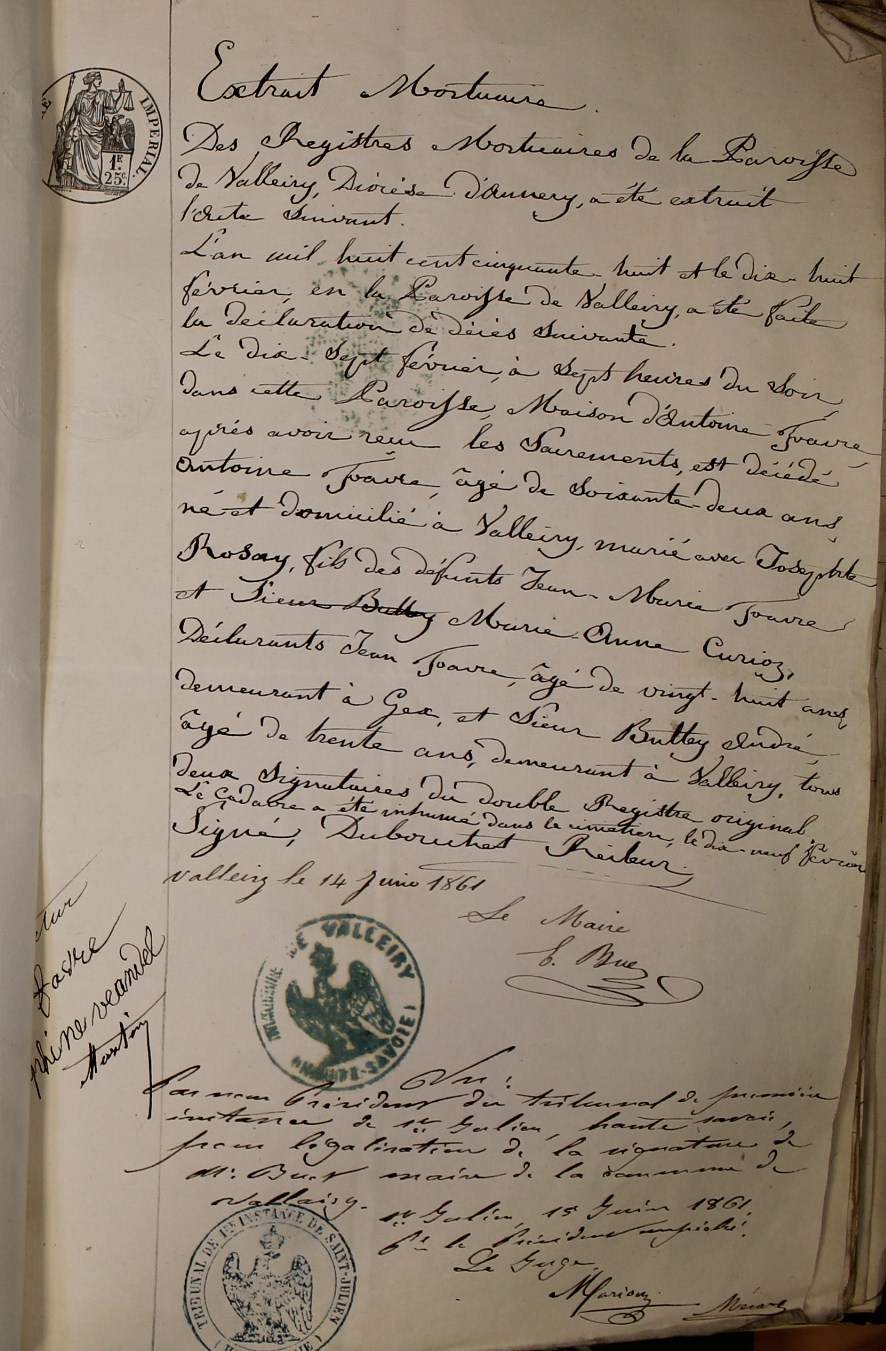 IMPERIAL.
1F
25c
Extrait Mortuaire.
Des Registres Mortuaires de la Paroisse
de Valleiry, Diocèse d'Annecy, a été extrait
l'acte suivant.
L'an mil huit cent cinquante-huit et le dix-huit
février, en la Paroisse de Valleiry, a été faite
la déclaration de décès suivante.
Le dix-sept février, à sept heures du soir,
dans cette Paroisse, Maison d'Antoine Favre,
après avoir reçu les Sacrements, est décédé
Antoine Favre, âgé de soixante-deux ans,
né et domicilié à Valleiry, marié avec Josephte
Rosay, fils des défunts Jean-Marie Favre
et Sieur Buttey Marie-Anne Curioz,
Déclarants Jean Favre, âgé de vingt-huit ans,
demeurant à Gex, et Sieur Buttey André,
âgé de trente ans, demeurant à Valleiry, tous
deux signataires du double Registre original.
Le Cadavre a été inhumé dans le cimetière, le dix-neuf février
Signé, Dubouchet Recteur.
Valleiry le 14 Juin 1861
Le Maire
MAIRIE DE VALLEIRY (HAUTE-SAVOIE)
favre
Martin
Vu:
Par nous Président du tribunal de première
instance de St Julien, haute savoie,
pour légalisation de la signature de
Mr. Buet maire de la commune de
Valleiry.
St Julien, 15 Juin 1861.
Pr le Président empêché.
Le Juge,
TRIBUNAL DE 1RE INSTANCE DE SAINT-JULIEN